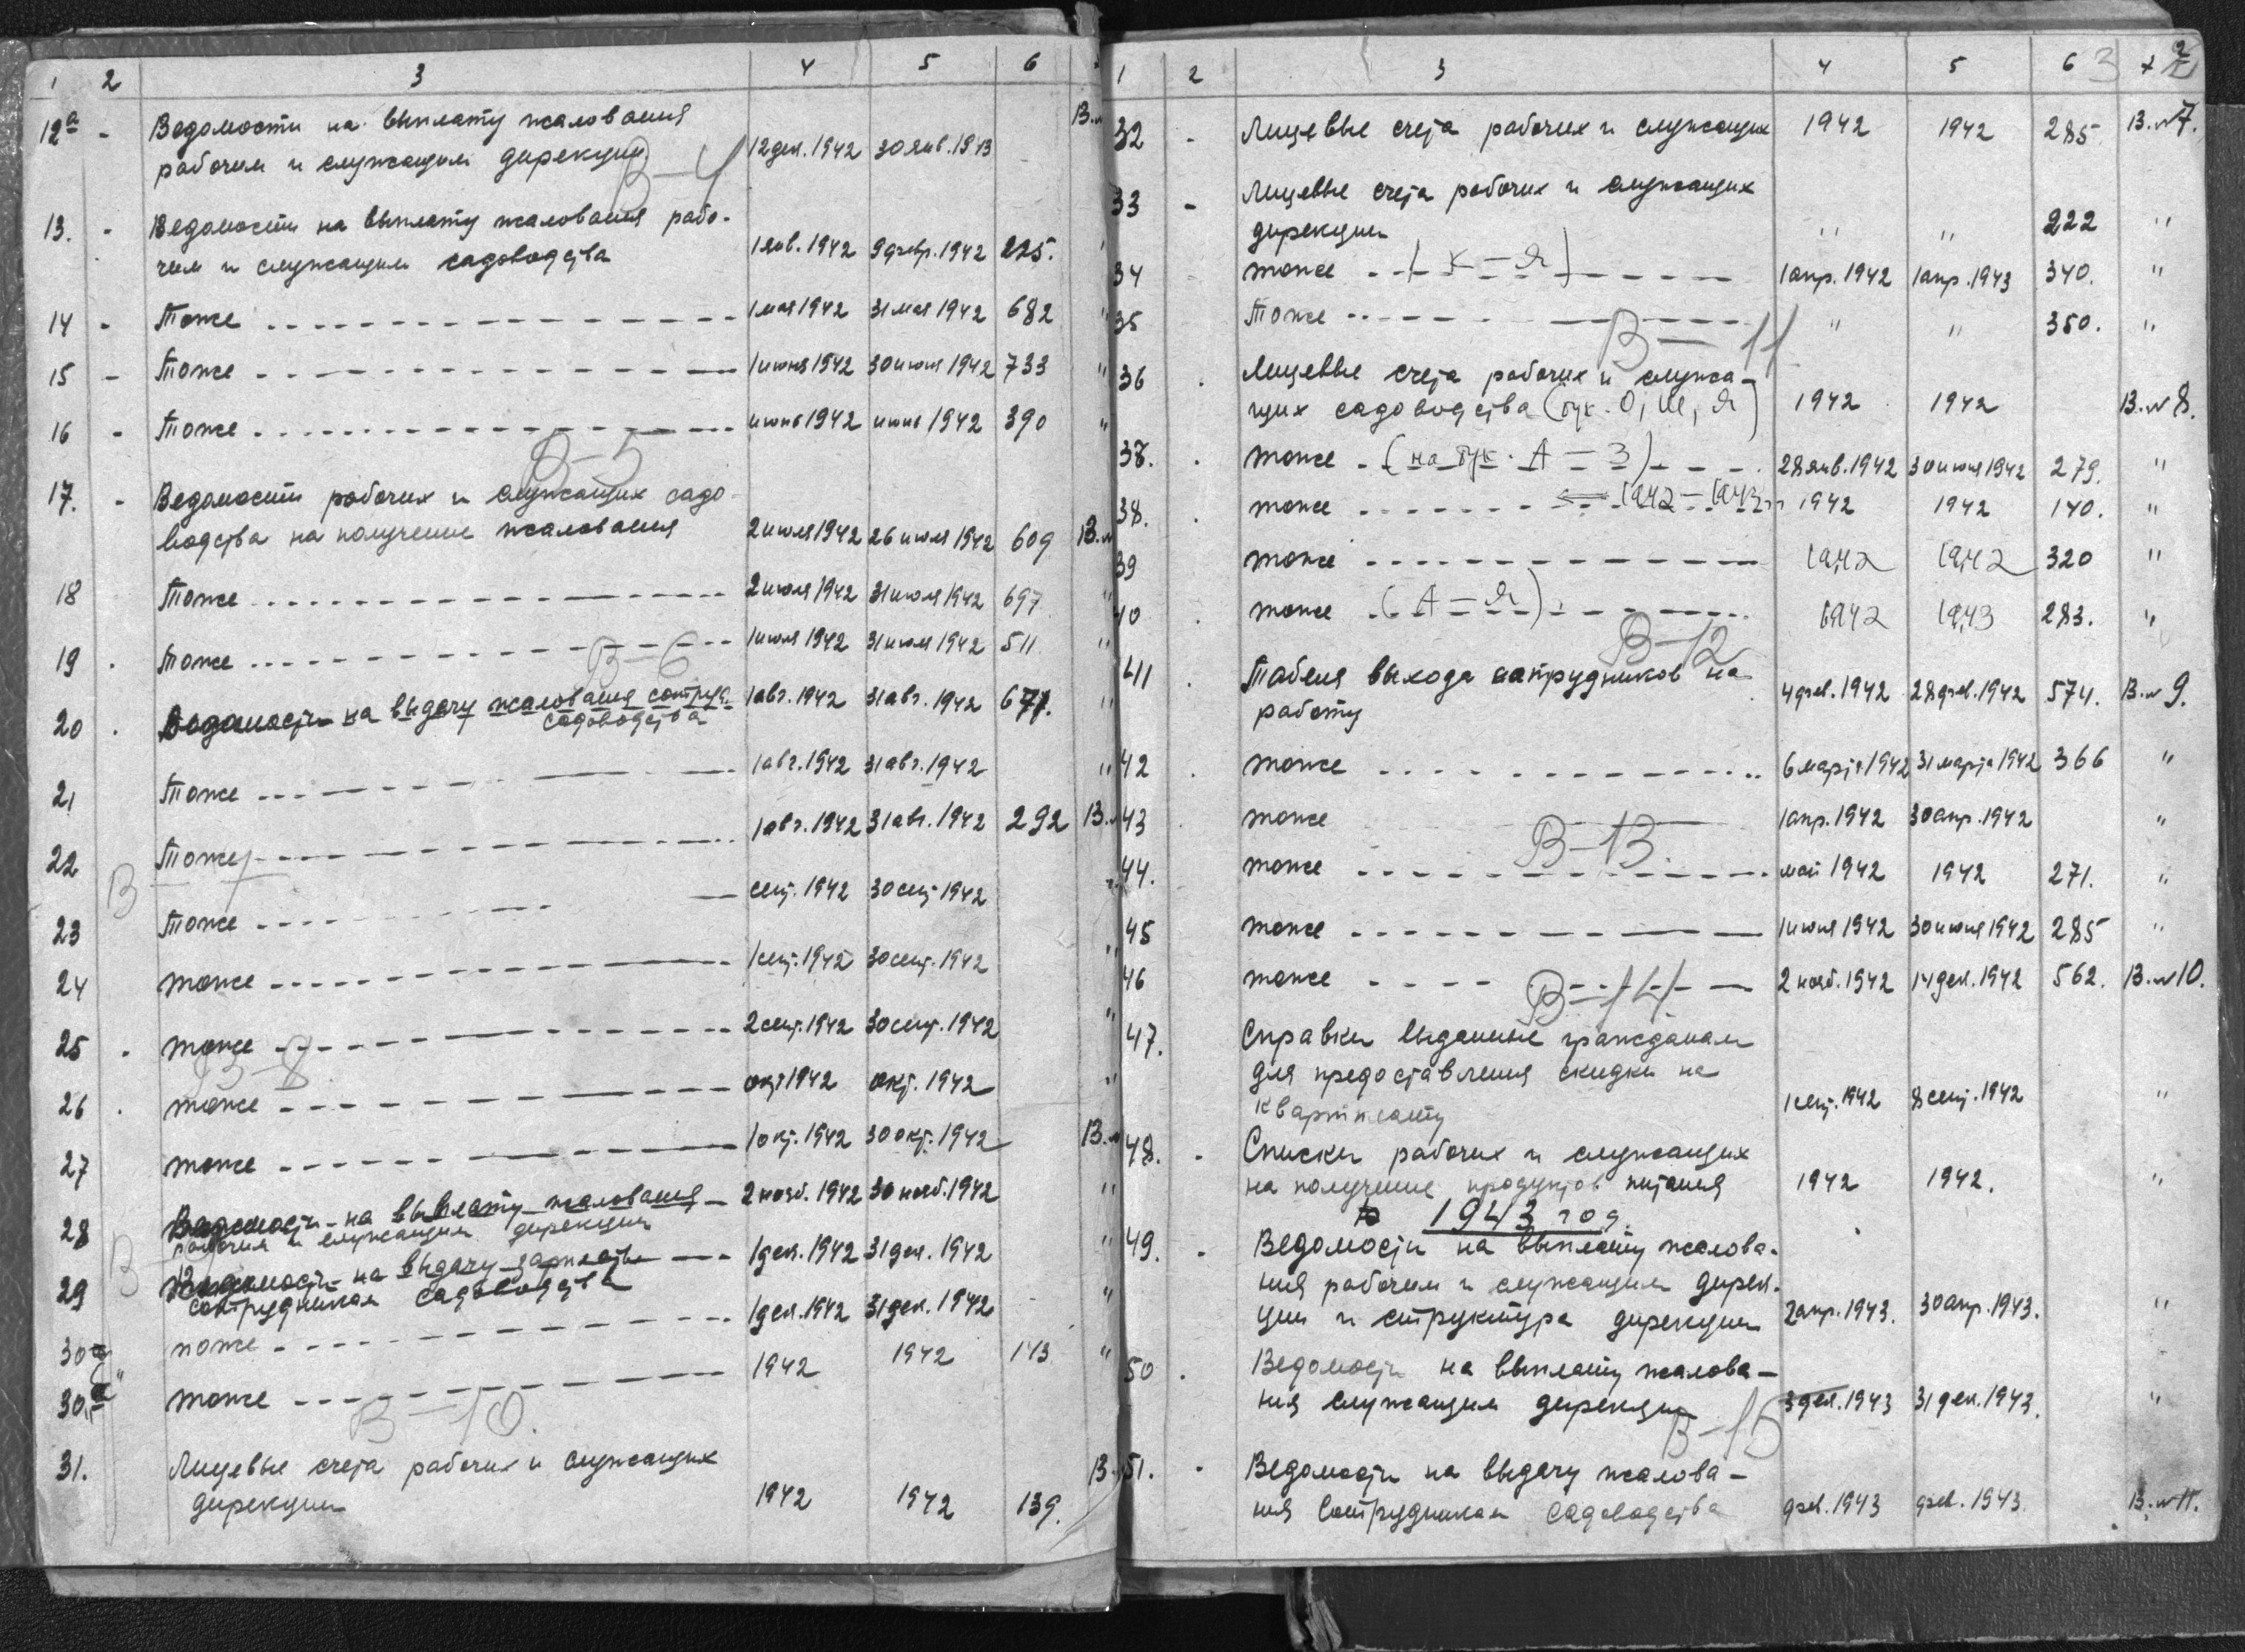 1 2 3 4 5 6
12а - Ведомости на выплату жалования
рабочим и служащим дирекции 12 дек. 1942 30 янв. 1943
В-4
13. - Ведомости на выплату жалования рабо-
чим и служащим садоводства 1 янв. 1942 9 февр. 1942 225.
14 - Тоже 1 мая 1942 31 мая 1942 682 "
15 - Тоже 1 июня 1942 30 июня 1942 733 "
16 - Тоже июнь 1942 июнь 1942 390 "
В-5
17. - Ведомости рабочих и служащих садо-
водства на получение жалования 2 июля 1942 26 июля 1942 609 В.№
18 Тоже 2 июля 1942 31 июля 1942 697 "
19 . Тоже 1 июля 1942 31 июля 1942 511 "
В-6
20 . Ведомости на выдачу жалования сотруд. 1 авг. 1942 31 авг. 1942 671. "
садоводства
21 Тоже 1 авг. 1942 31 авг. 1942 "
22 Тоже 1 авг. 1942 31 авг. 1942 292 В.
В-7
23 Тоже сент. 1942 30 сент 1942
24 тоже 1 сент. 1942 30 сент. 1942 "
25 . тоже 2 сент. 1942 30 сент. 1942 "
В-8
26 . тоже окт 1942 окт. 1942 "
27 тоже 1 окт. 1942 30 окт. 1942 В.№
28 Ведомости на выплату жалования 2 нояб. 1942 30 нояб. 1942 "
рабочим и служащим дирекции
В
29 Ведомости на выдачу зарплаты 1 дек. 1942 31 дек. 1942 "
сотрудникам садоводства
30 тоже 1 дек. 1942 31 дек. 1942 "
30а тоже 1942 1942 143 "
В-10.
31. Лицевые счета рабочих и служащих
дирекции 1942 1942 139. В.
1 2 3 4 5 6 3 7 2
32 - Лицевые счета рабочих и служащих 1942 1942 285 В.№7.
33 - Лицевые счета рабочих и служащих
дирекции " " 222 "
34 тоже (К-Я) 1 апр. 1942 1 апр. 1943 340. "
35 Тоже " " 350. "
В-11
36 . Лицевые счета рабочих и служа-
щих садоводства (бук. О, Ш, Я) 1942 1942 В.№8.
37. . тоже (на бук. А-З) 28 янв. 1942 30 июня 1942 279. "
38. . тоже 1942-1943 1942 1942 140. "
39 тоже 1942 1942 320 "
40 тоже (А-Я) 1942 1943 283. "
В-12
41 . Табеля выхода сотрудников на
работу 4 фев. 1942 28 фев. 1942 574. В.№9.
42 . тоже 6 марта 1942 31 марта 1942 366 "
43 . тоже 1 апр. 1942 30 апр. 1942 "
В-13.
44. тоже май 1942 1942 271. "
45 тоже 1 июня 1942 30 июня 1942 285 "
46 тоже 2 нояб. 1942 14 дек. 1942 562. В.№10.
В-14
47. Справки выданные гражданам
для предоставления скидки на
квартплату 1 сент. 1942 8 сент. 1942 "
48. - Списки рабочих и служащих
на получение продуктов питания 1942 1942. "
1943 год.
49. . Ведомости на выплату жалова-
ния рабочим и служащим дирек-
ции и структура дирекции 2 апр. 1943. 30 апр. 1943. "
50 . Ведомости на выплату жалова-
ния служащим дирекции 3 дек. 1943 31 дек. 1943. "
В-15
51. . Ведомости на выдачу жалова-
ния сотрудникам садоводства фев. 1943 фев. 1943. В.№11.